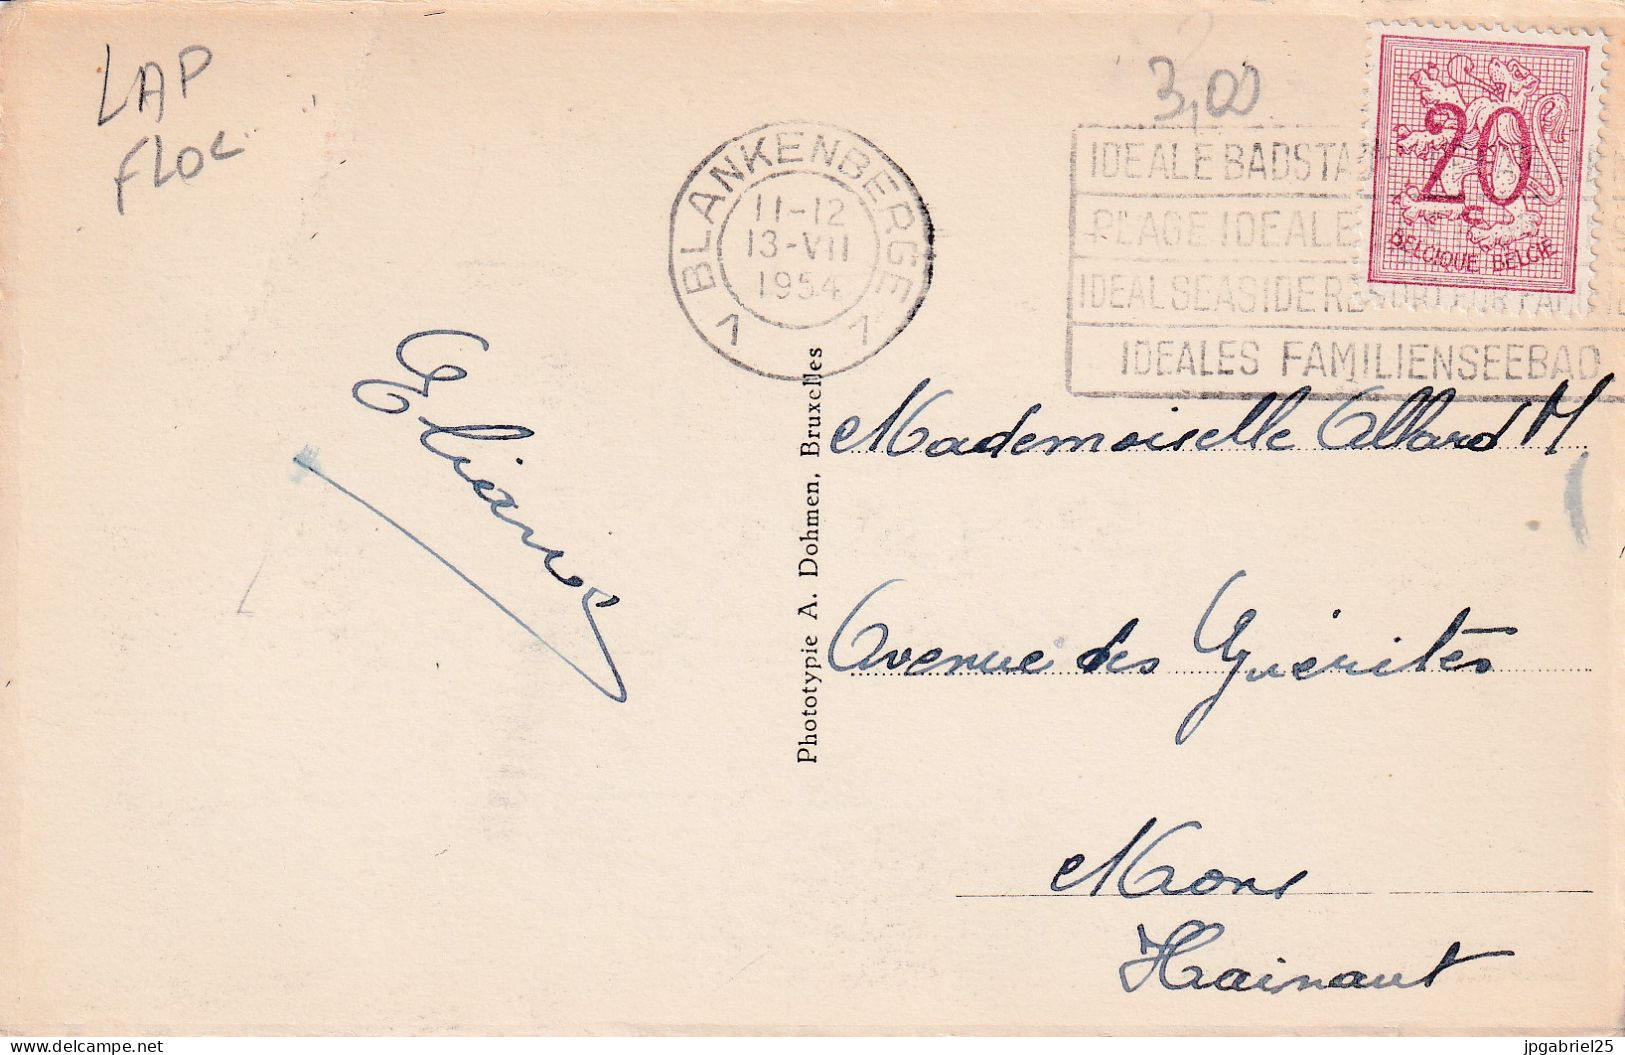 LAP
FLOC
3,00
BLANKENBERGE
11-12
13-VII
1954
1 1
IDEALE BADSTAD
PLAGE IDEALE
IDEAL SEASIDE RESORT FOR FAMILIES
IDEALES FAMILIENSEEBAD
20
BELGIQUE BELGIE
Eliane
Phototypie A. Dohmen, Bruxelles
Mademoiselle Allard M
Avenue des Guérites
Mons
Hainaut
delcampe.net
jpgabriel25